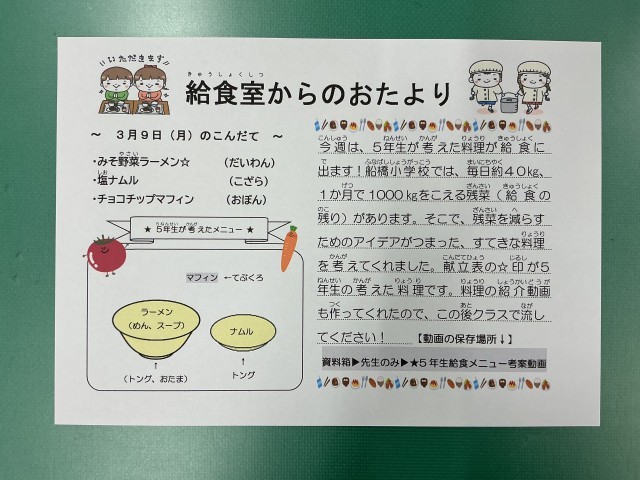 いただきます
給食室からのおたより
～ 3月9日（月）のこんだて ～
・みそ野菜ラーメン☆ （だいわん）
・塩ナムル （こざら）
・チョコチップマフィン （おぼん）
★ 5年生が考えたメニュー ★
マフィン ←てぶくろ
ラーメン
（めん、スープ）
ナムル
↑
（トング、おたま）
↑
トング
今週は、5年生が考えた料理が給食に
出ます！船橋小学校では、毎日約40kg、
1か月で1000kgをこえる残菜（給食の
残り）があります。そこで、残菜を減らす
ためのアイデアがつまった、すてきな料理
を考えてくれました。献立表の☆印が5
年生の考えた料理です。料理の紹介動画
も作ってくれたので、この後クラスで流し
てください！ 【動画の保存場所↓】
資料箱▶先生のみ▶★5年生給食メニュー考案動画